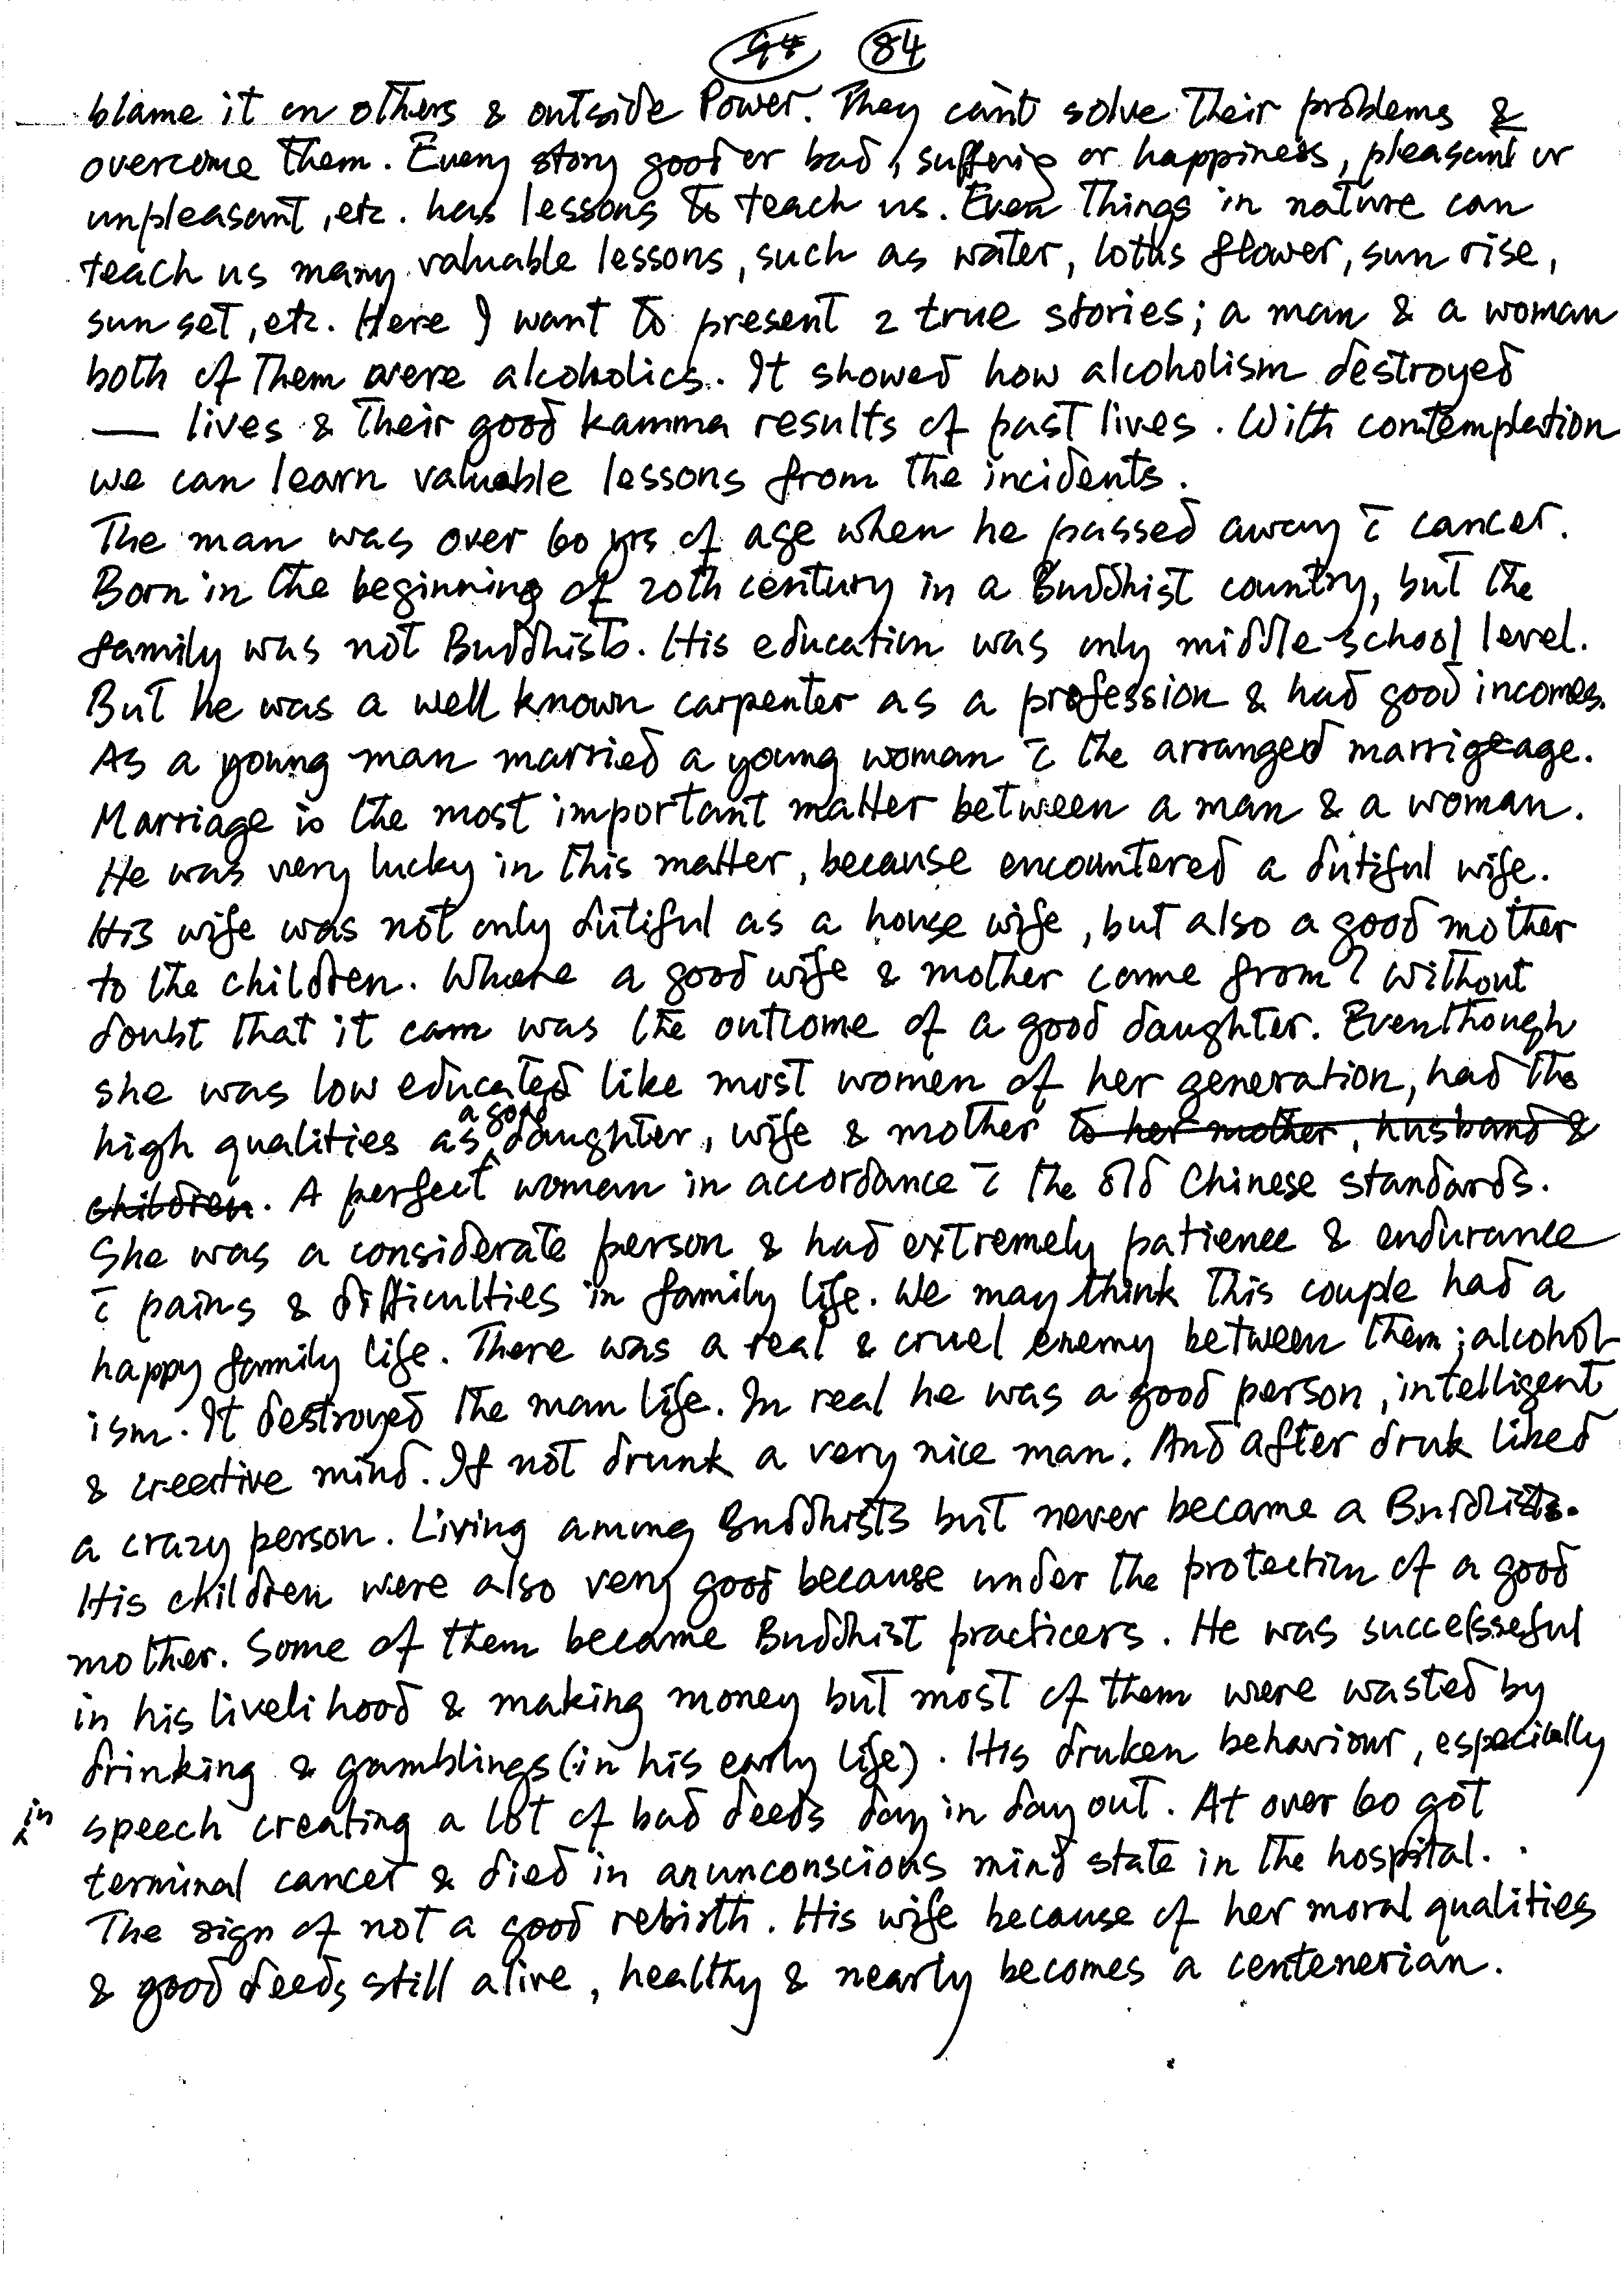 84
blame it on others & outside Power. They can't solve their problems &
overcome them. Every story good or bad, suffering or happiness, pleasant or
unpleasant, etc. has lessons to teach us. Even things in nature can
teach us many valuable lessons, such as water, lotus flower, sun rise,
sun set, etc. Here I want to present 2 true stories; a man & a woman
both of them were alcoholics. It showed how alcoholism destroyed
— lives & their good kamma results of past lives. With contemplation
we can learn valuable lessons from the incidents.
The man was over 60 yrs of age when he passed away c̄ cancer.
Born in the beginning of 20th century in a Buddhist country, but the
family was not Buddhists. His education was only middle-school level.
But he was a well known carpenter as a profession & had good incomes.
As a young man married a young woman c̄ the arranged marrigeage.
Marriage is the most important matter between a man & a woman.
He was very lucky in this matter, because encountered a dutiful wife.
His wife was not only dutiful as a house wife, but also a good mother
to the children. Where a good wife & mother came from? Without
doubt that it cam was the outcome of a good daughter. Eventhough
she was low educated like most women of her generation, had the
high qualities as a good daughter, wife & mother to her mother, husband &
children. A perfect woman in accordance c̄ the old Chinese standards.
She was a considerate person & had extremely patience & endurance
c̄ pains & difficulties in family life. We may think this couple had a
happy family life. There was a real & cruel enemy between them; alcohol-
ism. It destroyed the man life. In real he was a good person, intelligent
& creative mind. If not drunk a very nice man. And after druk liked
a crazy person. Living among Buddhists but never became a Buddhists.
His children were also very good because under the protection of a good
mother. Some of them became Buddhist practicers. He was successeful
in his livelihood & making money but most of them were wasted by
drinking & gamblings (in his early life). His druken behaviour, especially
in speech creating a lot of bad deeds day in day out. At over 60 got
terminal cancer & died in an unconscious mind state in the hospital.
The sign of not a good rebirth. His wife because of her moral qualities
& good deeds still alive, healthy & nearly becomes a centenerian.